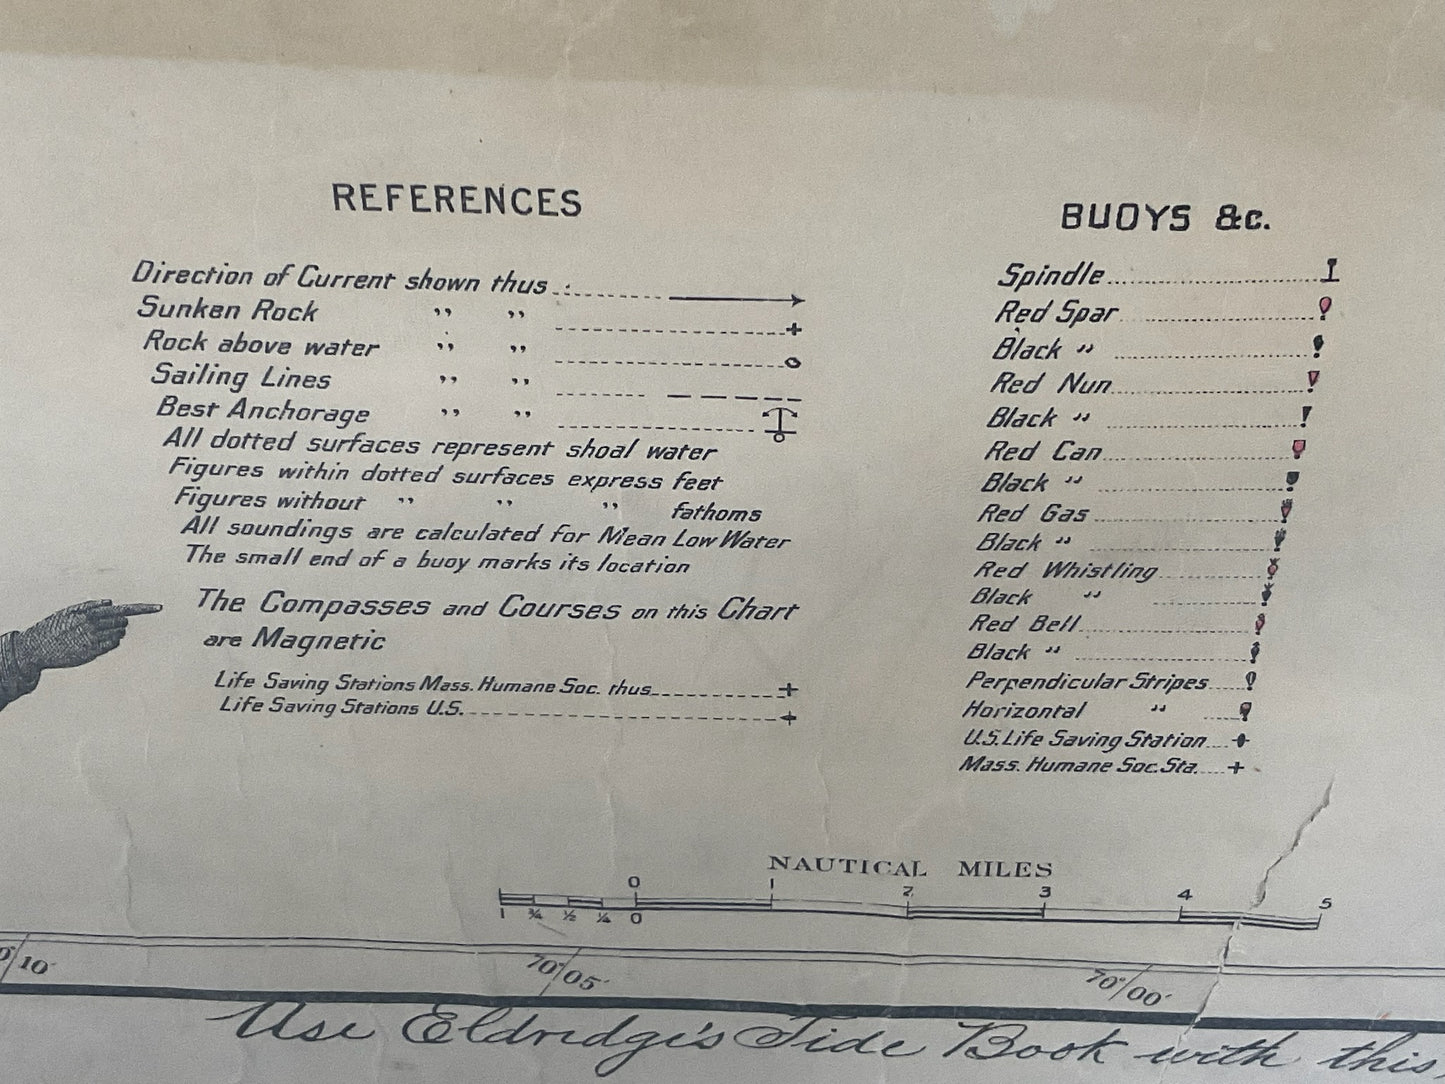 REFERENCES
Direction of Current shown thus
Sunken Rock " "
Rock above water " "
Sailing Lines " "
Best Anchorage " "
All dotted surfaces represent shoal water
Figures within dotted surfaces express feet
Figures without " " " fathoms
All soundings are calculated for Mean Low Water
The small end of a buoy marks its location
The Compasses and Courses on this Chart
are Magnetic
Life Saving Stations Mass. Humane Soc. thus
Life Saving Stations U.S.
BUOYS &c.
Spindle
Red Spar
Black "
Red Nun
Black "
Red Can
Black "
Red Gas
Black "
Red Whistling
Black "
Red Bell
Black "
Perpendicular Stripes
Horizontal "
U.S. Life Saving Station
Mass. Humane Soc. Sta.
NAUTICAL MILES
0 1 2 3 4 5
1 ¾ ½ ¼ 0
10' 70°05' 70°00'
Use Eldridge's Tide Book with this